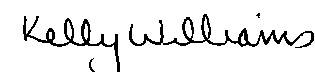 Kelly Williams